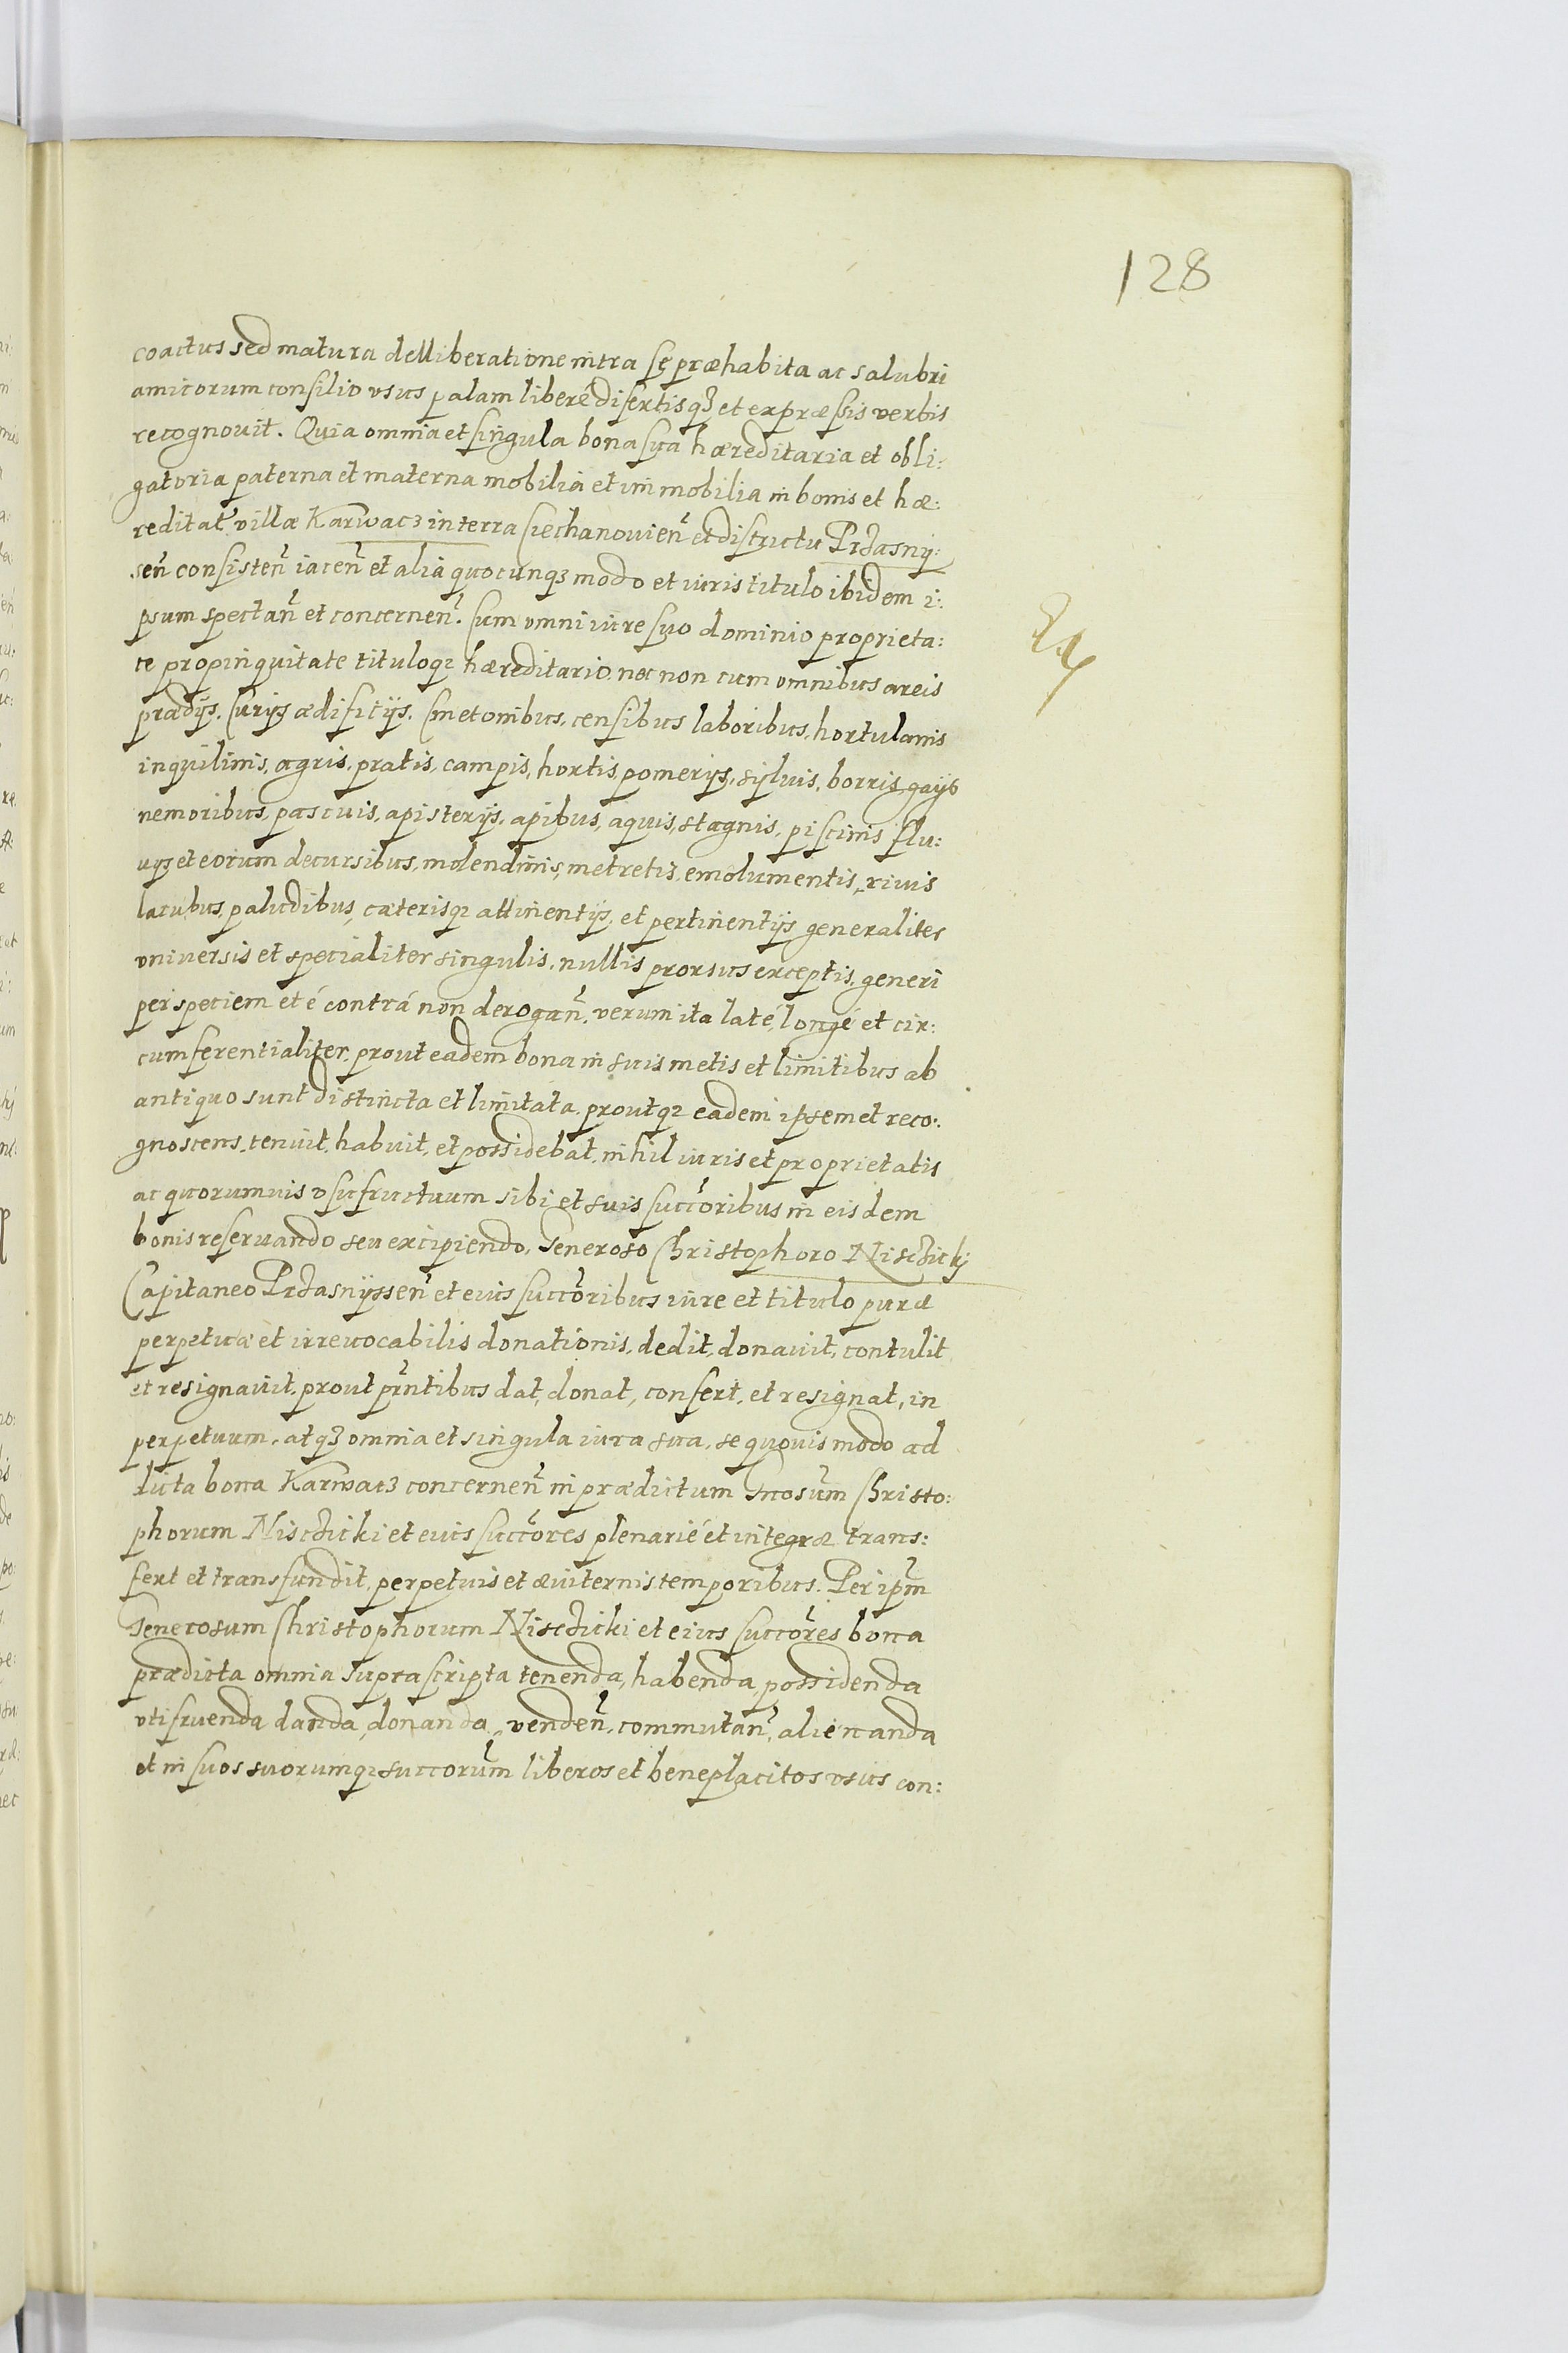 128
coactus sed matura delliberatione intra se præhabita ac salubri
amicorum consilio vsus palam liberé disertisq3 et expræssis verbis
recognouit. Quia omnia et singula bona sua hæreditaria et obli:
gatoria paterna et materna mobilia et immobilia in bonis et hæ:
reditat̃ villæ Karwacz in terra Ciechanouien̄ et districtu Przasny:
sen̄ consisten̄ iacen̄ et alia quocunq3 modo et iuris titulo ibidem i:
psum spectan̄ et concernen̄. Cum omni iure suo dominio proprieta:
te propinquitate tituloq3 hæreditario. nec non cum omnibus areis
prædijs. Curijs ædificijs. Cmetonibus. censibus laboribus. hortulanis
inquilinis, agris, pratis, campis, hortis pomerijs, syluis, borris gayis
nemoribus, pascuis, apisterijs, apibus, aquis, stagnis, piscinis flu:
uijs et eorum decursibus, molendinis, metretis, emolumentis, riuis
lacubus, paludibus, cæterisq3 attinentijs, et pertinentijs generaliter
vniuersis et specialiter singulis. nullis prorsus exceptis, generi
per speciem et é contrá non derogan̄, verum ita laté, longé et cir:
cumferentialiter, prout eadem bona in suis metis et limitibus ab
antiquo sunt distincta et limitata. proutq3 eadem ipsemet reco:
gnoscens, tenuit, habuit, et possidebat, nihil iuris et proprietatis
ac quorumuis vsufructuum sibi et suis succ̃oribus in eisdem
bonis reseruando seu excipiendo. Generoso Christophoro Nisczickj
Capitaneo Przasnyssen̄ et eius succ̃oribus iure et titulo puræ
perpetuæ et irreuocabilis donationis, dedit, donauit, contulit
et resignauit, prout prn̄tibus dat, donat, confert, et resignat, in
perpetuum. atq3 omnia et singula iura sua, se quouis modo ad
dicta bona Karwacz concernen̄ in prædictum Gnosum̃ Christo:
phorum Nisczicki et eius succ̃ores plenarié et integræ trans:
fert et transfundit, perpetuis et æuiternis temporibus. Per ipm̃
Generosum Christophorum Nisczicki et eius succ̃ores bona
prædicta omnia supra scripta tenenda, habenda, possidenda
vtifruenda danda, donanda, venden̄, commutan̄, alienanda
et in suos suorumq3 succorum̃ liberos et beneplacitos vsus con: